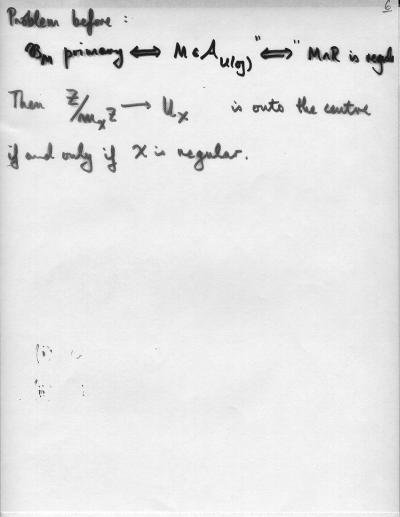 6
Problem before :
𝔅_M primary ⟺ M ∈ A_{U(g)} "⟺" M∩R is regul
Then Z/m_χ Z ⟶ U_χ is onto the centre
if and only if χ is regular.